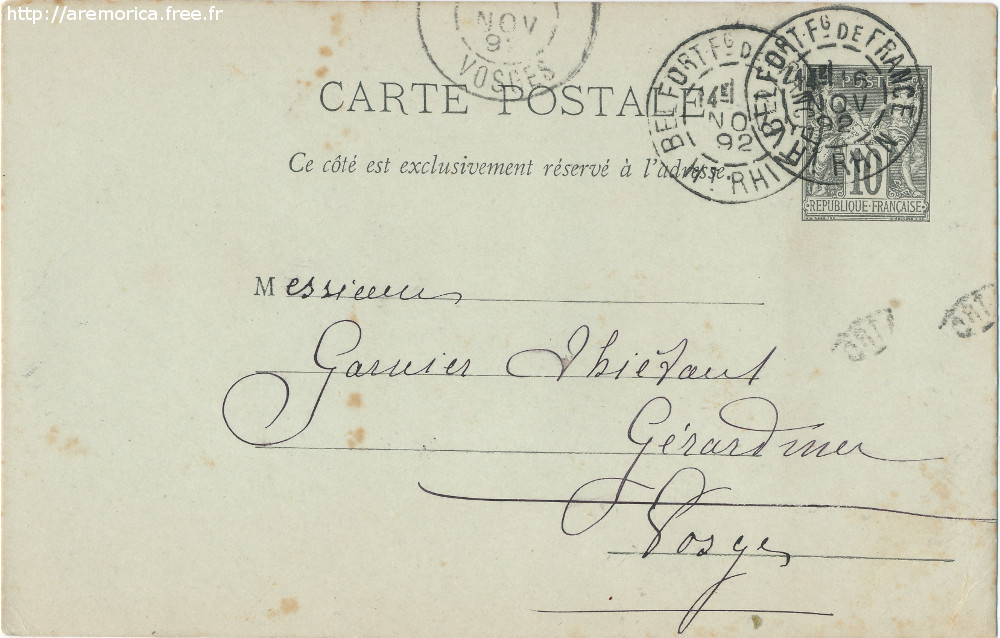 http://aremorica.free.fr
NOV
9
VOSGES
BELFORT·Fg DE
NO
92
Ht RHIN
BELFORT·Fg DE FRANCE
6
NOV
92
CARTE POSTALE
Ce côté est exclusivement réservé à l'adresse.
10
REPUBLIQUE·FRANÇAISE
Messieurs
Garnier Thiébaut
Gérardmer
Vosges